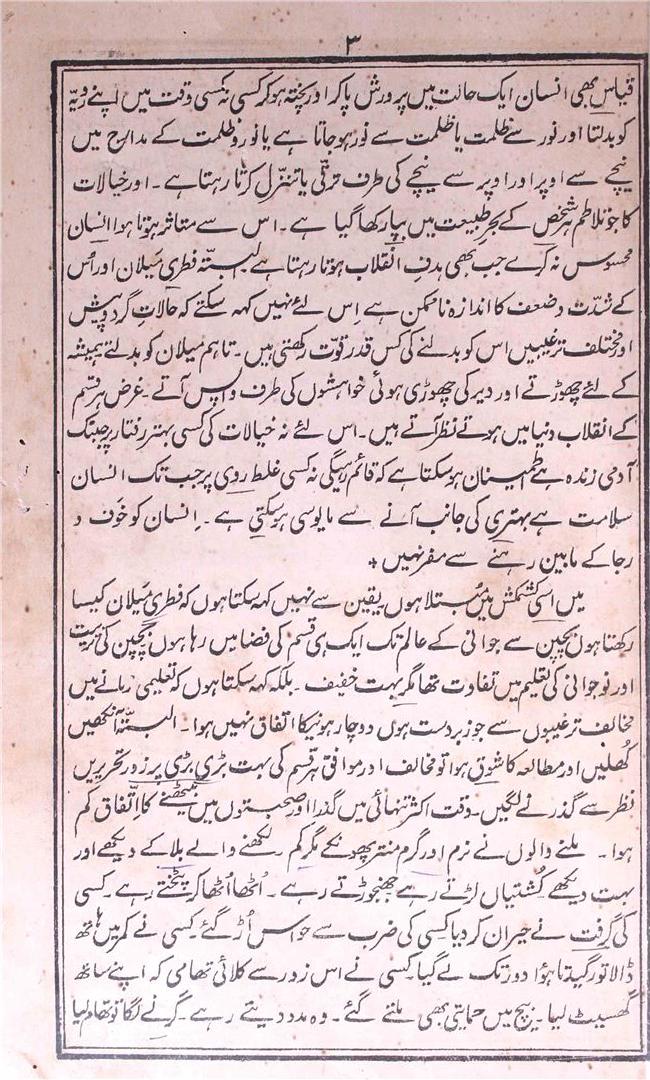 ۳
قیاس بھی انسان ایک حالت میں پرورش پاکر اور پختہ ہوکر کسی نہ کسی وقت میں اپنے رویّہ
کو بدلتا اور نور سے ظلمت یا ظلمت سے نور ہوجاتا ہے یا نور و ظلمت کے مدارج میں
نیچے سے اوپر اور اوپر سے نیچے کی طرف ترقّی یا تنزّل کرتا رہتا ہے۔ اور خیالات
کا جو تلاطم ہر شخص کے بحرِ طبیعت میں بپا رکھا گیا ہے۔ اس سے متاثر ہوتا ہوا انسان
محسوس نہ کرے جب بھی ہدفِ انقلاب ہوتا رہتا ہے البتّہ فطری میلان اور اُس
کے شدّت و ضعف کا اندازہ ناممکن ہے اِس لئے نہیں کہہ سکتے کہ حالاتِ گرد و پیش
اور مختلف ترغیبیں اس کو بدلنے کی کس قدر قوّت رکھتی ہیں۔ تاہم میلان کو بدلنے ہمیشہ
کے لئے چھوڑتے اور دیر کی چھوڑی ہوئی خواہشوں کی طرف واپس آتے۔ غرض ہر قسم
کے انقلاب دنیا میں ہوتے نظر آتے ہیں۔ اس لئے نہ خیالات کی کسی بہتر رفتار پر جبتک
آدمی زندہ ہے اطمینان ہوسکتا ہے کہ قائم رہیگی نہ کسی غلط روی پر جب تک انسان
سلامت ہے بہتری کی جانب آنے سے مایوسی ہوسکتی ہے۔ اِنسان کو خوف و
رجا کے مابین رہنے سے مفر نہیں +
میں اسی کشمکش میں مُبتلا ہوں یقین سے نہیں کہہ سکتا ہوں کہ فطری میلان کیسا
رکھتا ہوں بچپن سے جوانی کے عالم تک ایک ہی قسم کی فضا میں رہا ہوں بچپن کی تربیت
اور نوجوانی کی تعلیم میں تفاوت تھا مگر بہت خفیف۔ بلکہ کہہ سکتا ہوں کہ تعلیمی زمانے میں
مخالف ترغیبوں سے جو زبردست ہوں دوچار ہونیکا اتفاق نہیں ہوا۔ البتّہ آنکھیں
کُھلیں اور مطالعہ کا شوق ہوا تو مخالف اور موافق ہر قسم کی بہت بڑی بڑی پرزور تحریریں
نظر سے گذرنے لگیں۔ وقت اکثر تنہائی میں گذرا اور صحبتوں میں بیٹھنے کا اِتّفاق کم
ہوا۔ ملنے والوں نے نرم اور گرم منتر پھونکے مگر کم لکھنے والے بلا کے دیکھے اور
بہت دیکھے کُشتیاں لڑتے رہے جھنجوڑتے رہے۔ اُٹھا اُٹھا کر پٹختے رہے۔ کسی
کی گرفت نے حیران کردیا کسی کی ضرب سے حواس اُڑ گئے۔ کسی نے کمر میں ہاتھ
ڈالا تو رگیدتا ہؤا دور تک لے گیا۔ کسی نے اس زور سے کلائی تھامی کہ اپنے ساتھ
گھسیٹ لیا۔ بیچ میں حمایتی بھی ملتے گئے۔ وہ مدد دیتے رہے۔ گرنے لگا تو تھام لیا